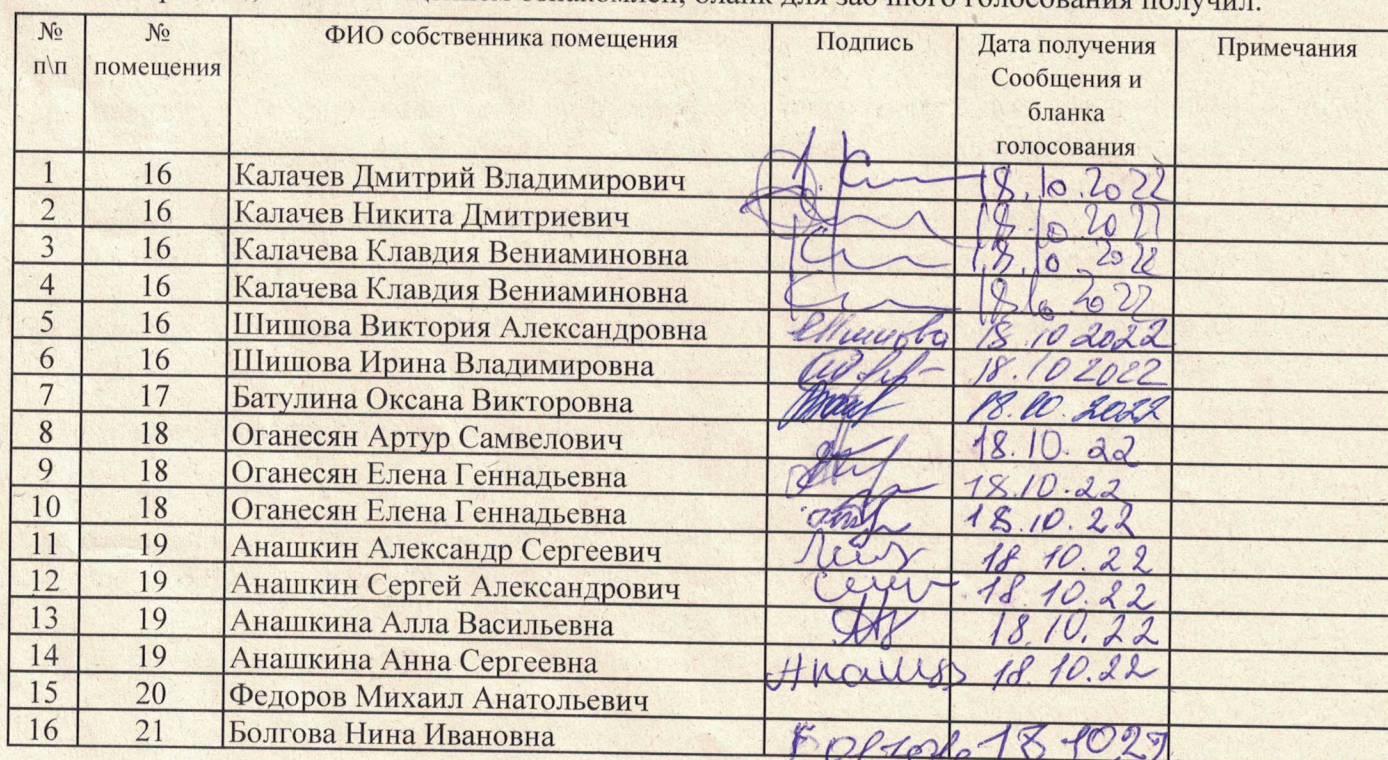 бланк для заочного голосования получил.
№ п\п № помещения ФИО собственника помещения Подпись Дата получения Сообщения и бланка голосования Примечания
1 16 Калачев Дмитрий Владимирович 18.10.2022
2 16 Калачев Никита Дмитриевич 18.10.2022
3 16 Калачева Клавдия Вениаминовна 18.10.2022
4 16 Калачева Клавдия Вениаминовна 18.10.2022
5 16 Шишова Виктория Александровна Шишова 18.10 2022
6 16 Шишова Ирина Владимировна 18.10 2022
7 17 Батулина Оксана Викторовна 18.10.2022
8 18 Оганесян Артур Самвелович 18.10.22
9 18 Оганесян Елена Геннадьевна 18.10.22
10 18 Оганесян Елена Геннадьевна 18.10.22
11 19 Анашкин Александр Сергеевич 18.10.22
12 19 Анашкин Сергей Александрович 18.10.22
13 19 Анашкина Алла Васильевна 18.10.22
14 19 Анашкина Анна Сергеевна 18.10.22
15 20 Федоров Михаил Анатольевич
16 21 Болгова Нина Ивановна 18 10 22